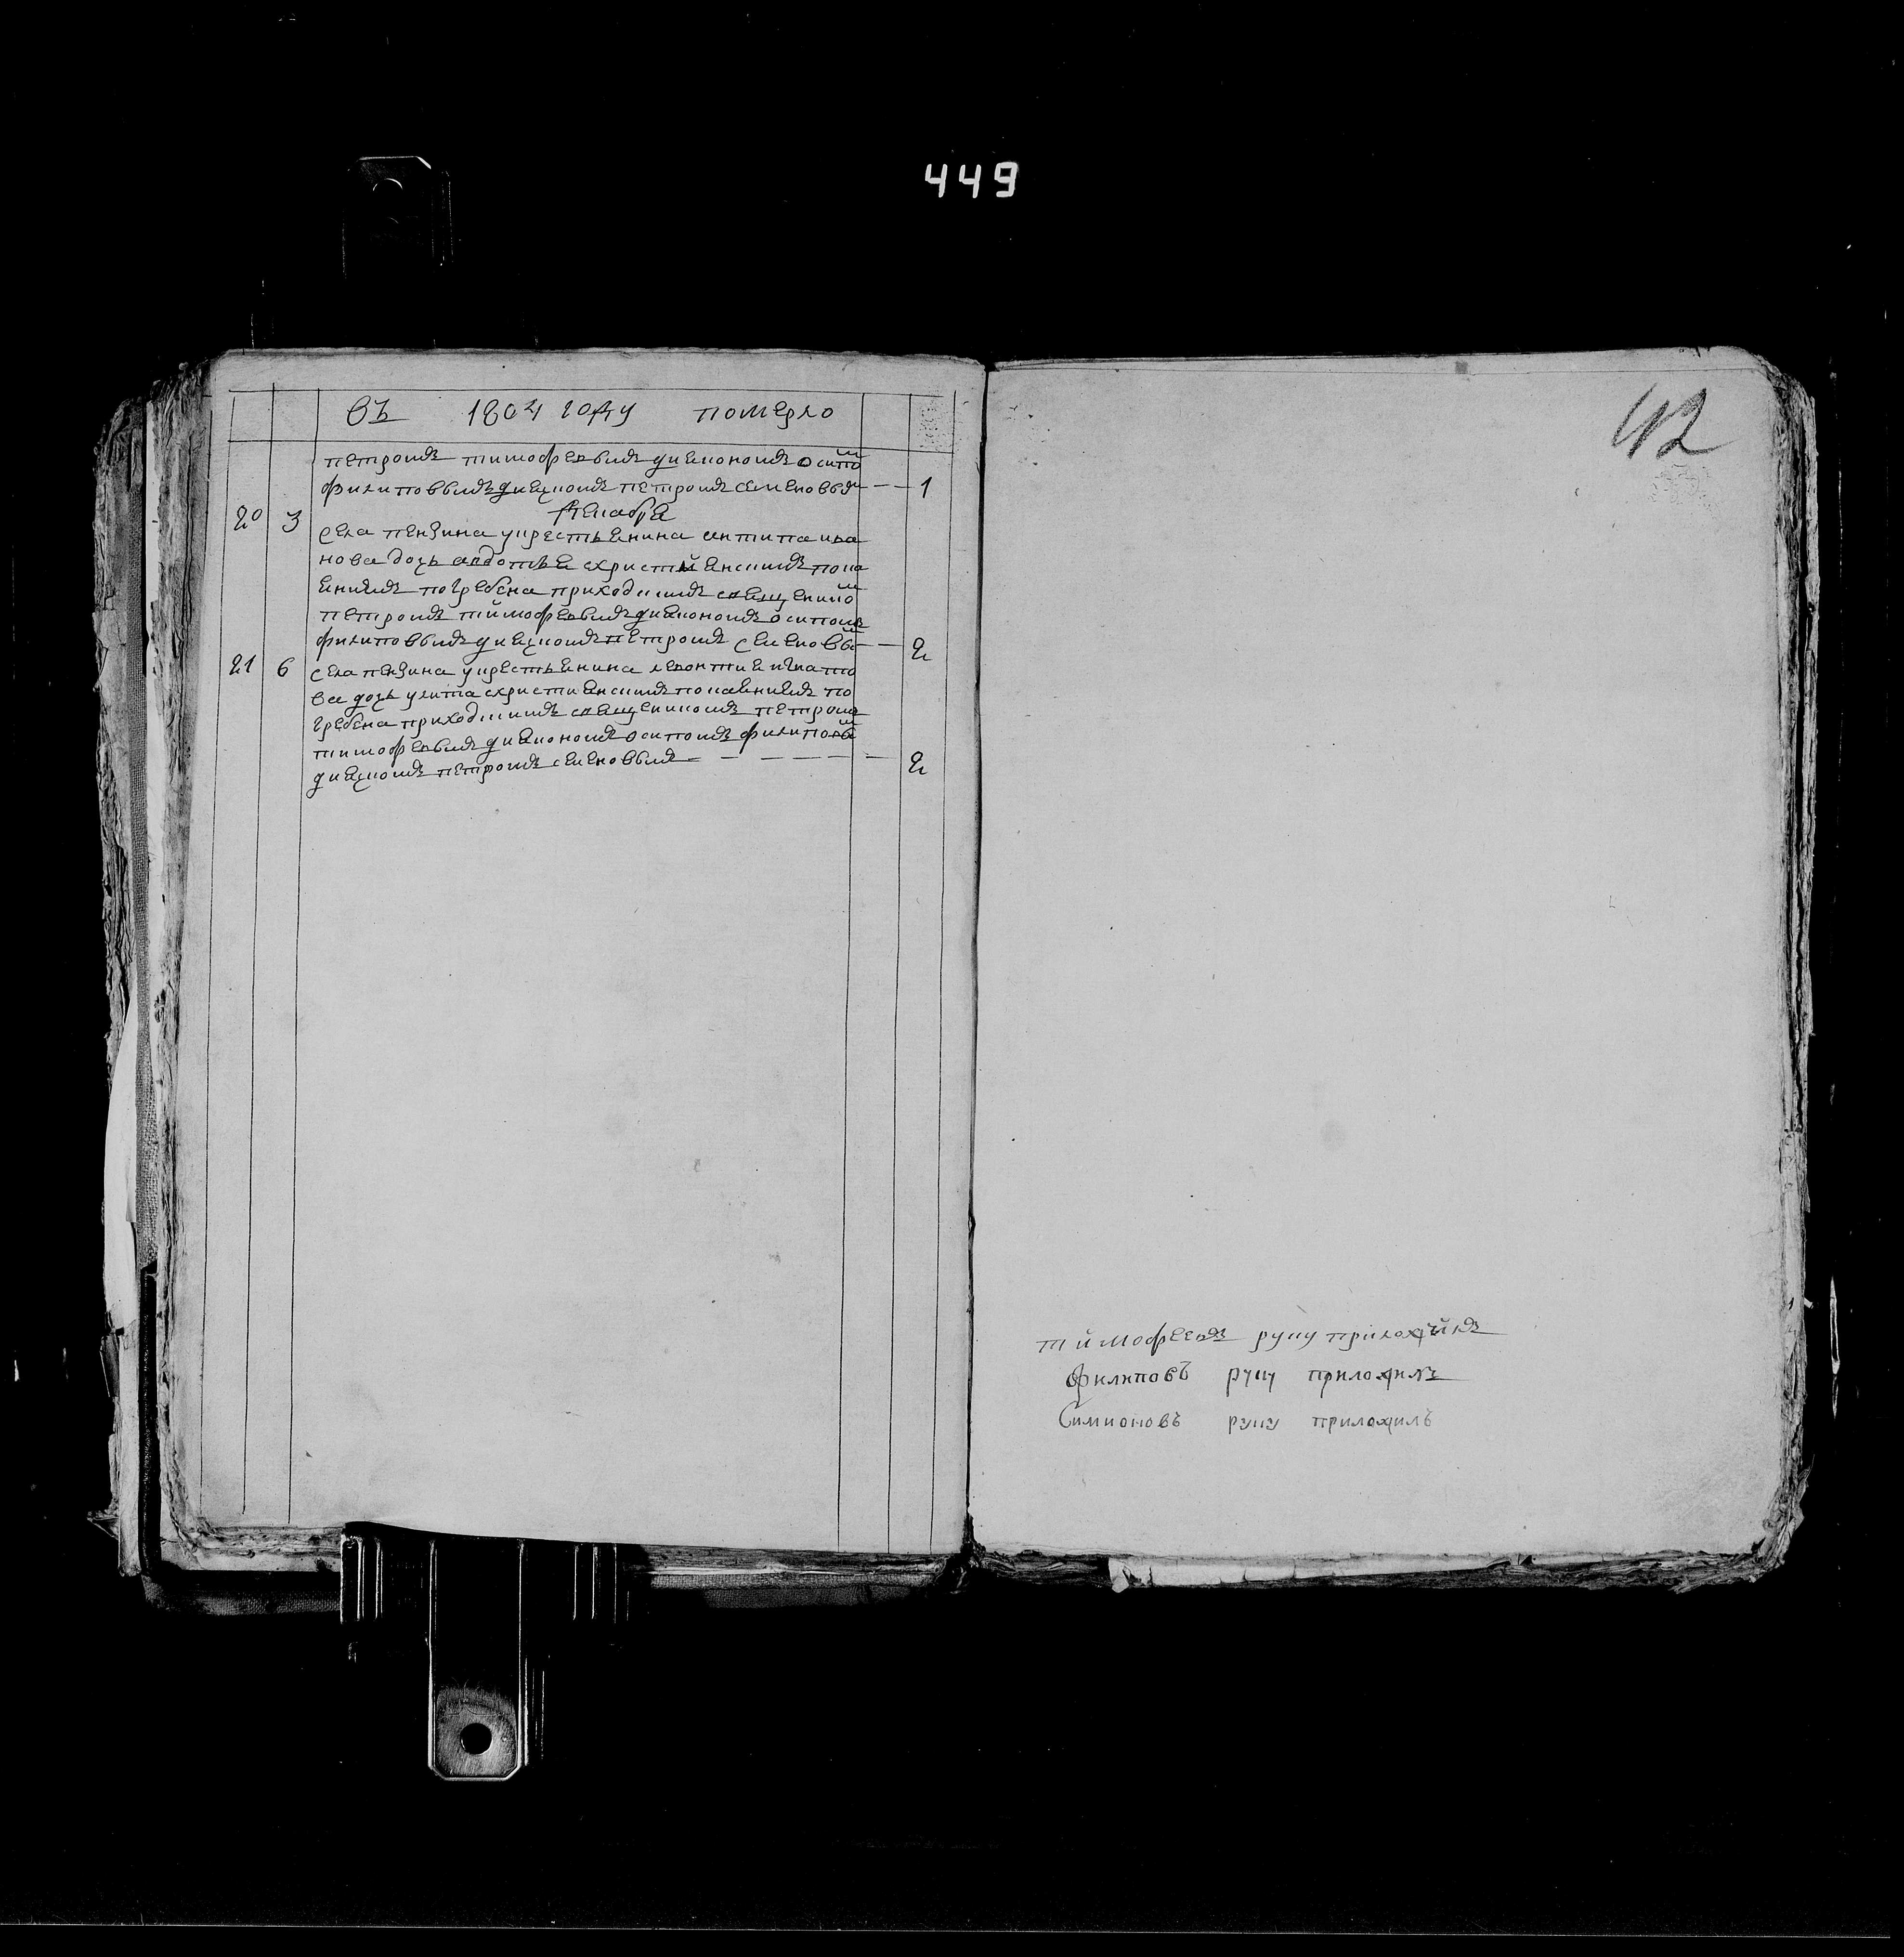 449
въ 1804 году померло
петромъ тимофеевымъ диакономъ осипо
филиповымъ диячкомъ петромъ семеновым 1
декабря
20 3 села пензина у крестьянина антипа ива
нова дочь авдотья схристиянскимъ пока
янилмъ погребена приходскимъ священико
петромъ тимофеевымъ диаконамъ осипомъ
филиповымъ диячкомъ петромъ семеновы 2
21 6 села пензина у крестьянина леонтия игнато
ва дочь улита схристиянскимъ покаяниемъ по
гребена приходскимъ священикомъ петромъ
тимофеевымъ диаконамъ осипомъ филиповы
диячкомъ петромъ семеновымъ 2
42
тимофеевъ руку приложилъ
филиповъ руку приложилъ
Симионовъ руку приложилъ